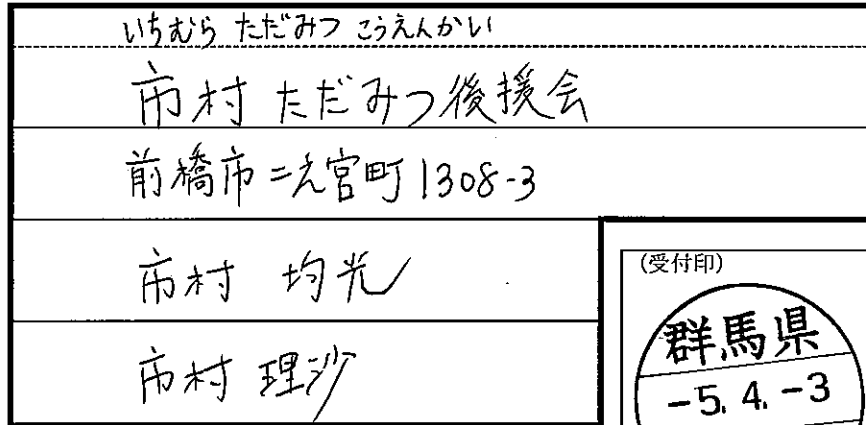 いちむら ただみつ こうえんかい
市村 ただみつ後援会
前橋市二之宮町1308-3
市村 均光
市村 理沙
(受付印)
群馬県
-5.4.-3